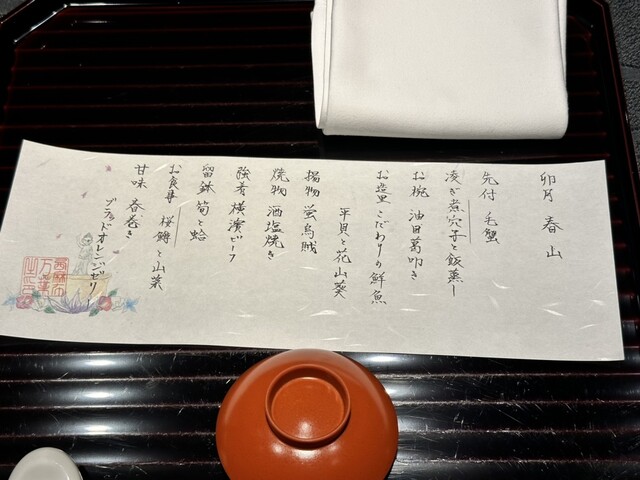 卯月 春山
先付 毛蟹
凌ぎ 煮穴子と飯蒸し
お椀 油目葛叩き
お造里 こだわりの鮮魚
平貝と花山葵
揚物 蛍烏賊
焼物 酒塩焼き
強肴 横濱ビーフ
留鉢 筍と蛤
お食事 桜鱒と山菜
甘味 春巻き
ブラッドオレンジゼリー